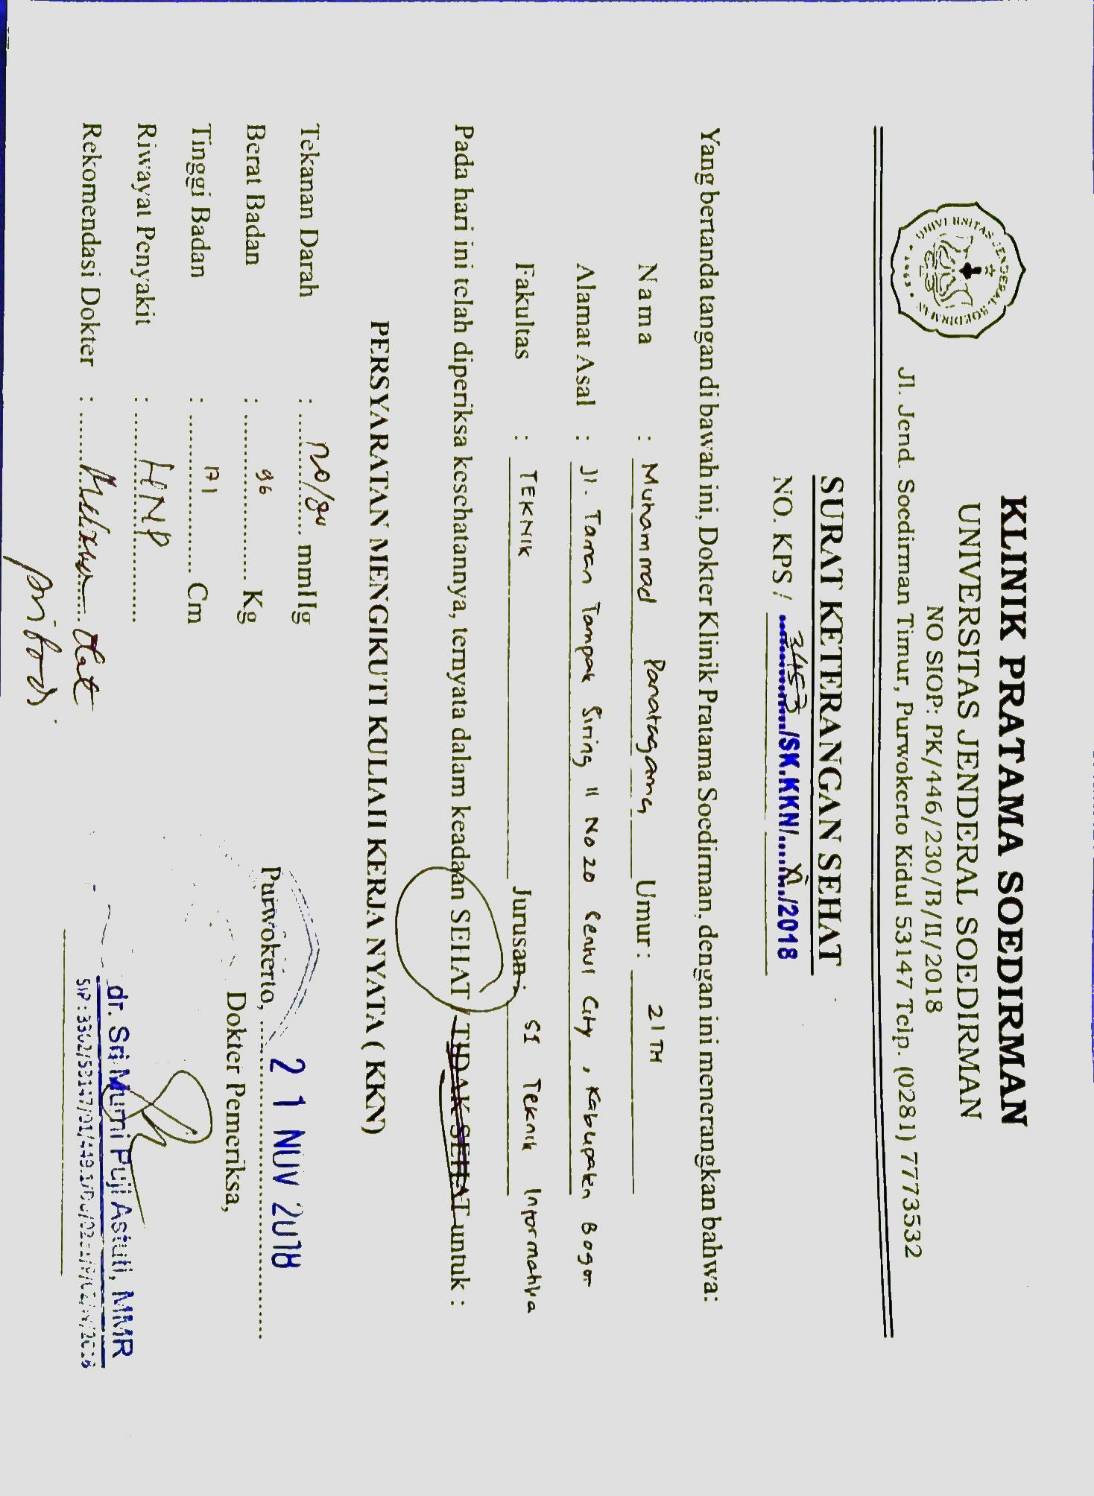 KLINIK PRATAMA SOEDIRMAN
UNIVERSITAS JENDERAL SOEDIRMAN
NO SIOP: PK/446/230/B/II/2018
Jl. Jend. Soedirman Timur, Purwokerto Kidul 53147 Telp. (0281) 7773532
UNIVERSITAS JENDERAL SOEDIRMAN
SURAT KETERANGAN SEHAT
NO. KPS / 3453/SK.KKN/...XI../2018
Yang bertanda tangan di bawah ini, Dokter Klinik Pratama Soedirman, dengan ini menerangkan bahwa:
Nama : Muhammad Panatagama Umur : 21 TH
Alamat Asal : Jl. Taman Tampak Siring II No 20 Sentul City , Kabupaten Bogor
Fakultas : TEKNIK Jurusan : S1 Teknik Informatika
Pada hari ini telah diperiksa kesehatannya, ternyata dalam keadaan SEHAT / TIDAK SEHAT untuk :
PERSYARATAN MENGIKUTI KULIAH KERJA NYATA ( KKN)
Tekanan Darah : 120/80 mmHg
Berat Badan : 96 Kg
Tinggi Badan : 171 Cm
Riwayat Penyakit : HNP
Rekomendasi Dokter : obat
pribadi.
Purwokerto, 21 NOV 2018
Dokter Pemeriksa,
dr. Sri Murni Puji Astuti, MMR